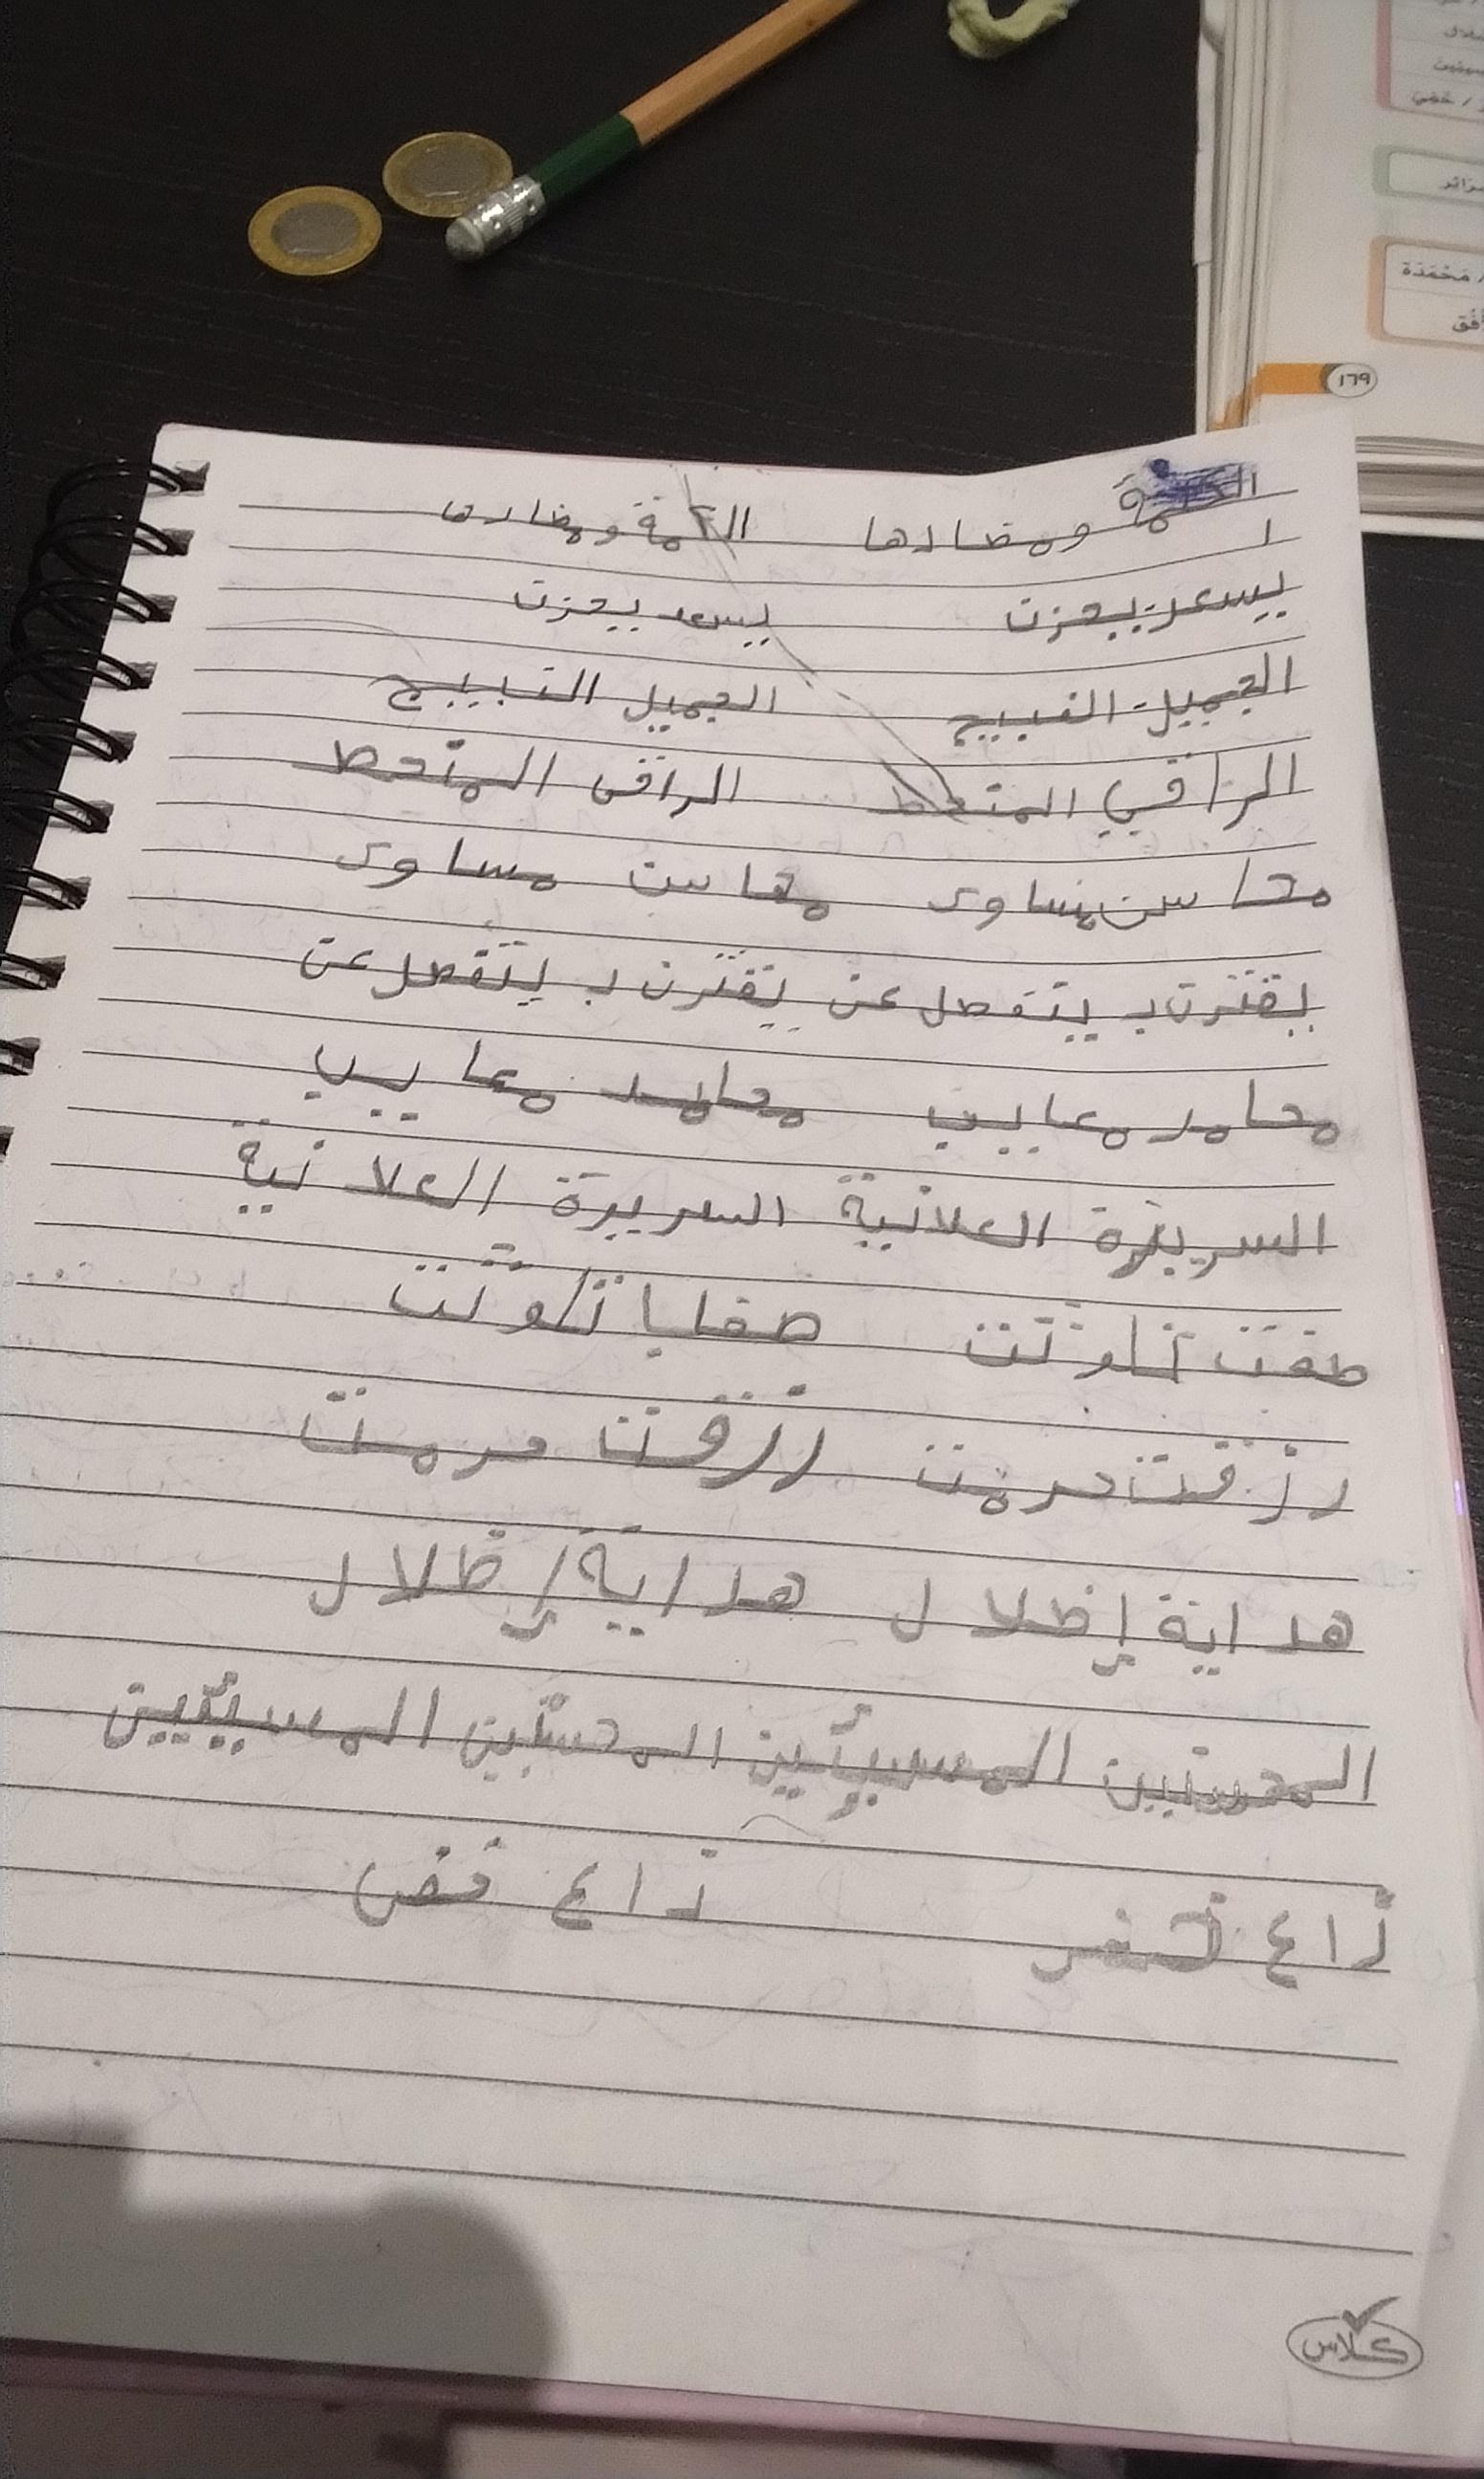 سرائر
/ محمدة
أفق
١٦٩
الكلمة ومضادها الكلمة ومضادها
يسعد يحزن يسعد يحزن
الجميل - القبيح الجميل القبيح
الراقي المنحط الراقي المنحط
محاسن مساوئ محاسن مساوئ
يقترن بـ ينفصل عن يقترن بـ ينفصل عن
محامد معايب محامد معايب
السريرة العلانية السريرة العلانية
تلوثت تلوثت
رزقت حرمت رزقت حرمت
هداية إظلال هداية إظلال
المحسنين المسيئين المحسنين المسيئين
ذاع ذاع
كلاس